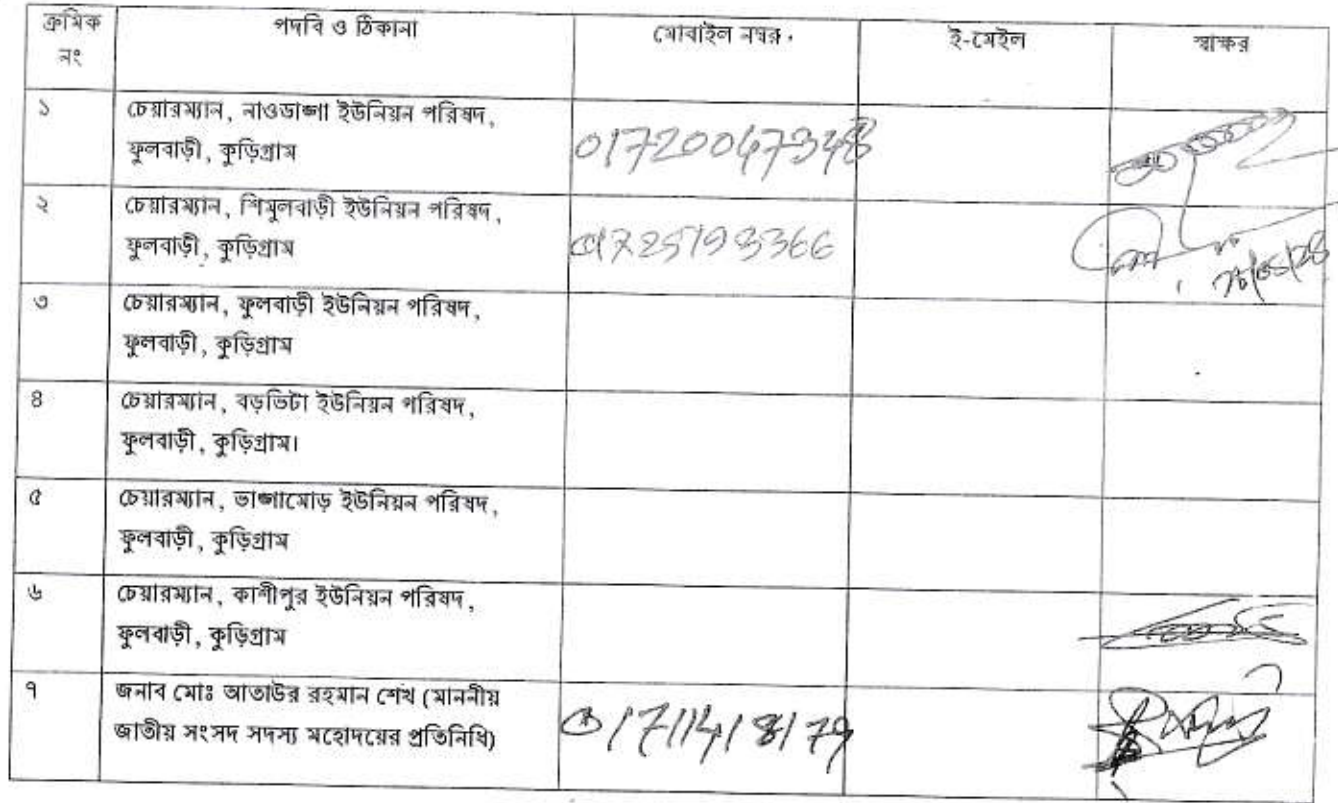 ক্রমিক নং
পদবি ও ঠিকানা
মোবাইল নম্বর
ই-মেইল
স্বাক্ষর
১
চেয়ারম্যান, নাওডাঙ্গা ইউনিয়ন পরিষদ,
ফুলবাড়ী, কুড়িগ্রাম
01720047348
২
চেয়ারম্যান, শিমুলবাড়ী ইউনিয়ন পরিষদ,
ফুলবাড়ী, কুড়িগ্রাম
01725193366
৩
চেয়ারম্যান, ফুলবাড়ী ইউনিয়ন পরিষদ,
ফুলবাড়ী, কুড়িগ্রাম
৪
চেয়ারম্যান, বড়ভিটা ইউনিয়ন পরিষদ,
ফুলবাড়ী, কুড়িগ্রাম।
৫
চেয়ারম্যান, ভাঙ্গামোড় ইউনিয়ন পরিষদ,
ফুলবাড়ী, কুড়িগ্রাম
৬
চেয়ারম্যান, কাশীপুর ইউনিয়ন পরিষদ,
ফুলবাড়ী, কুড়িগ্রাম
৭
জনাব মোঃ আতাউর রহমান শেখ (মাননীয়
জাতীয় সংসদ সদস্য মহোদয়ের প্রতিনিধি)
01711418179